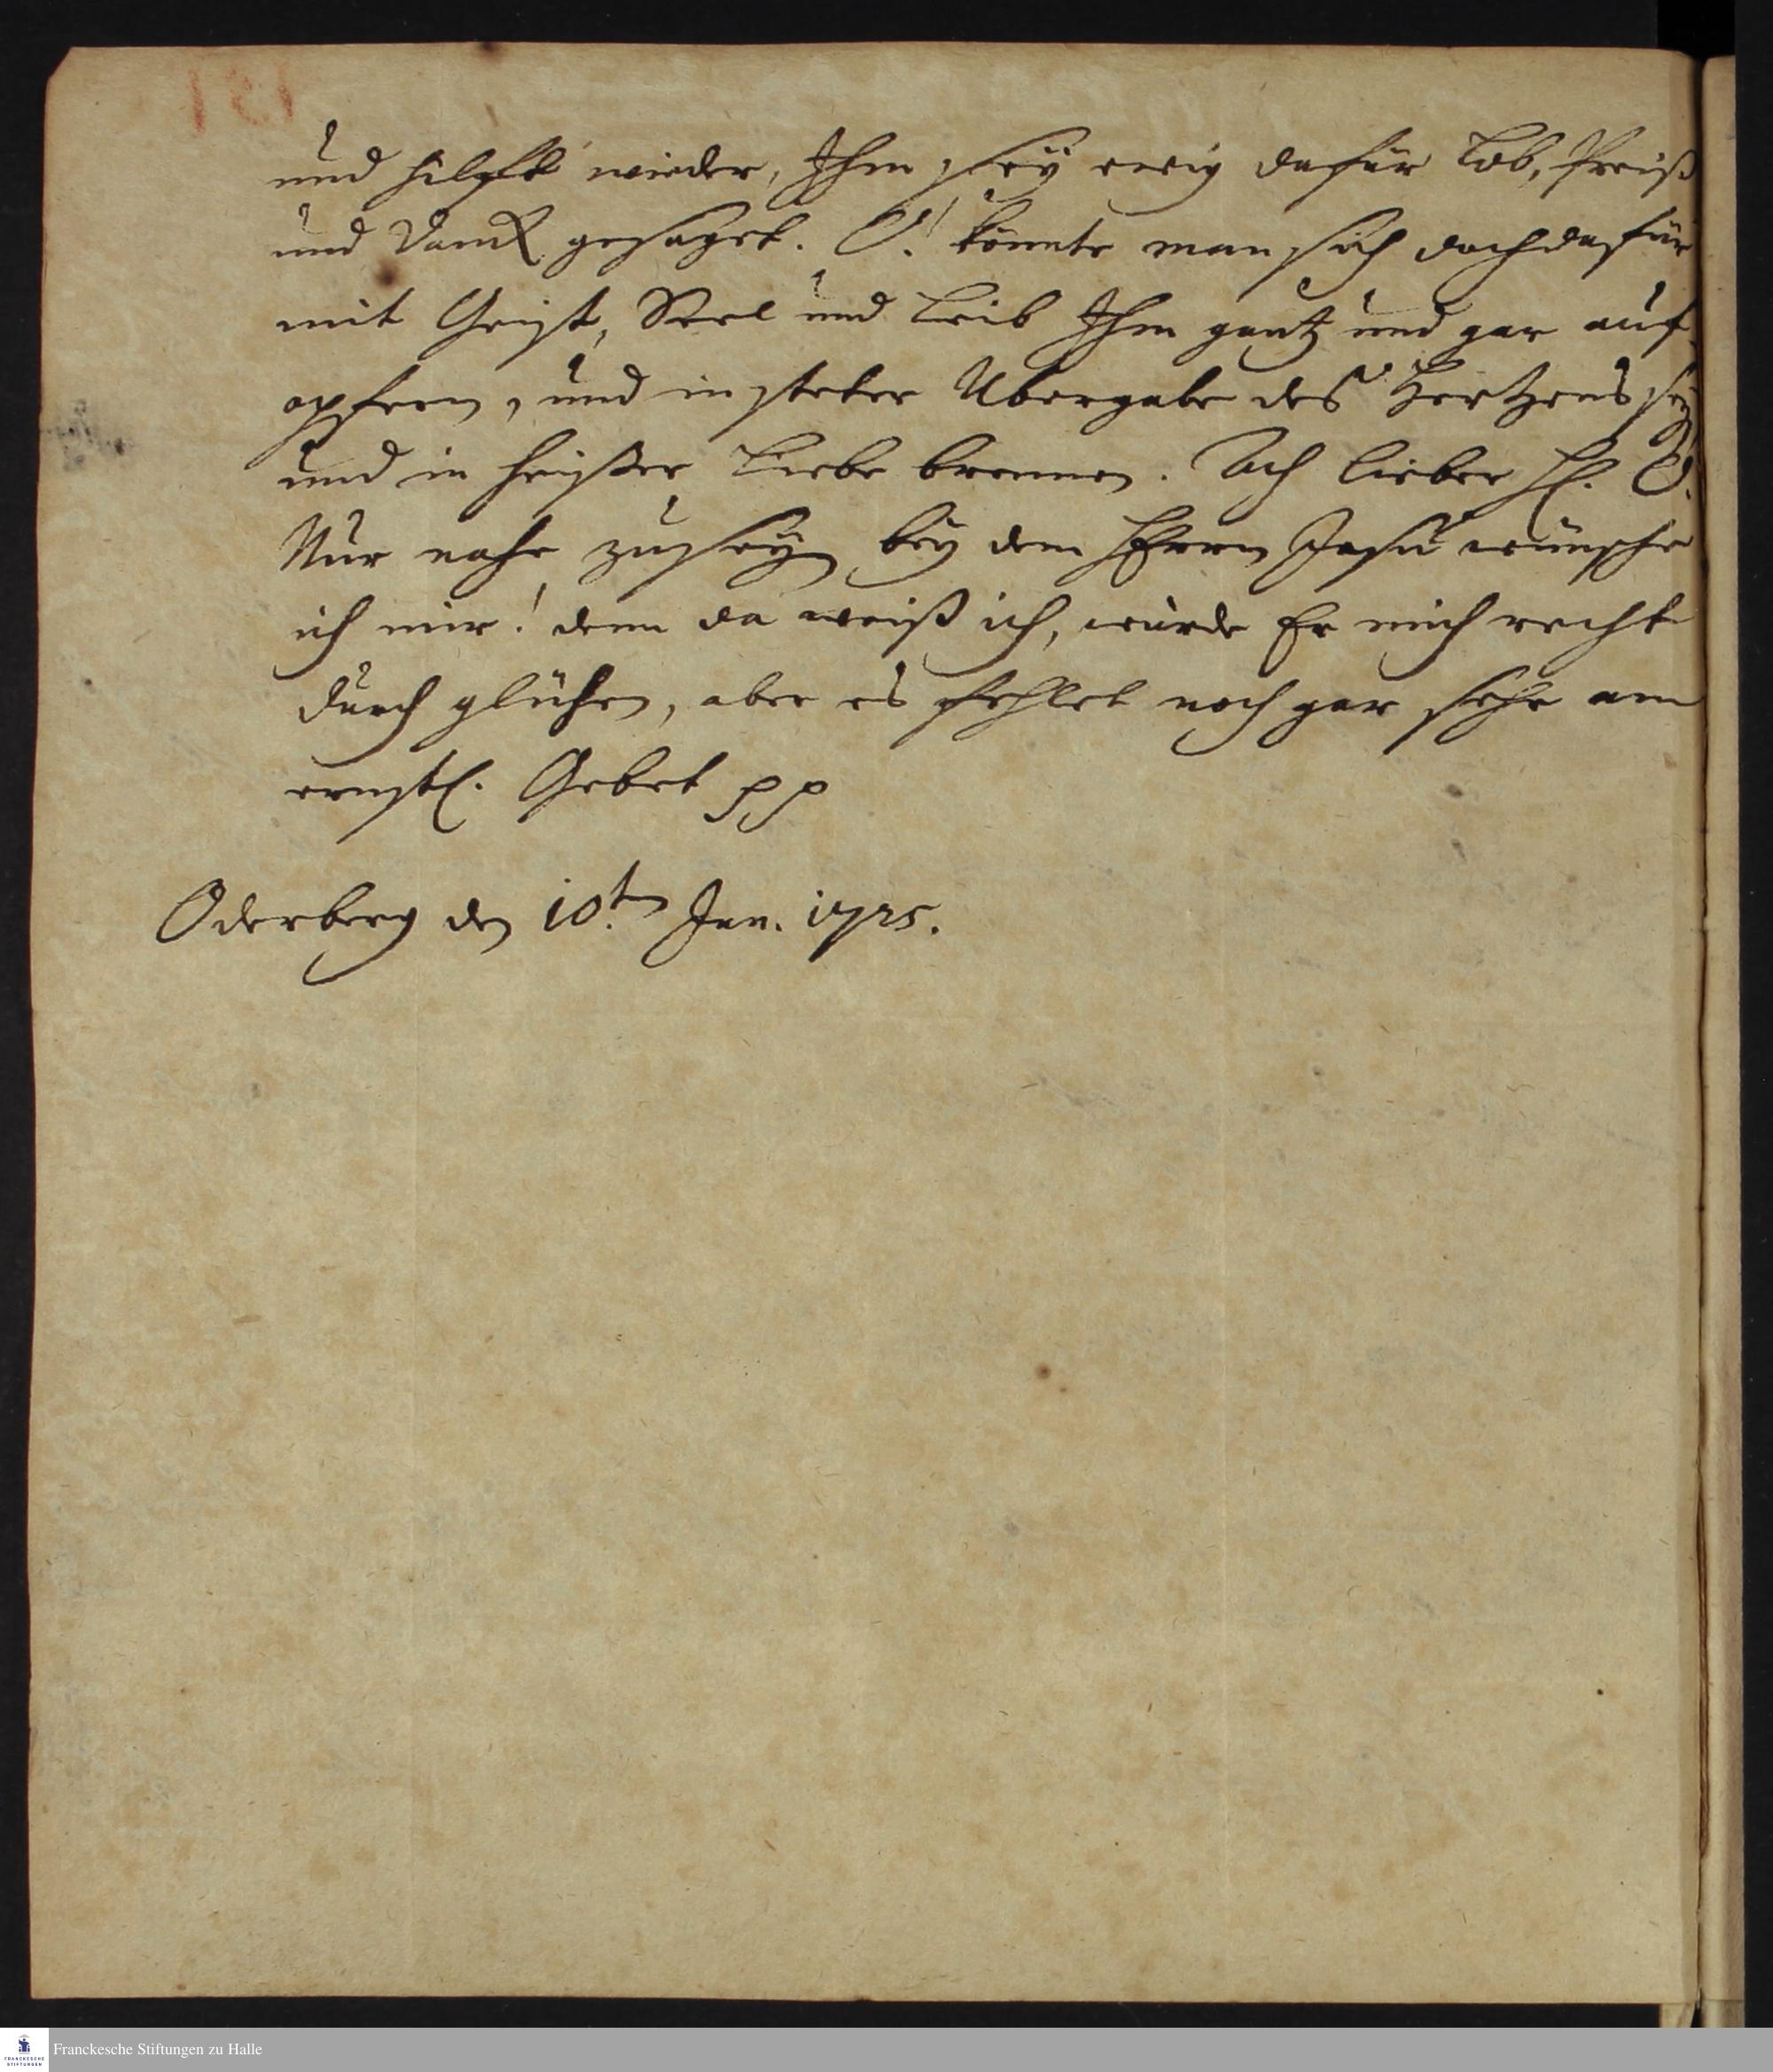 und hilfft wieder, Ihm sey ewig dafür Lob, Preiß
und Danck gesaget. O! könnte man sich doch dafür
mit Geist, Seel und Leib Ihm gantz und gar auf
opfern, und in steter Ubergabe des Hertzens seyn
und in heißer Liebe brennen. Ach lieber H. O.
Nur nahe zu seyn bey dem HErrn Jesu wünsche
ich mir! denn da weiß ich, würde Er mich recht
durch glühen, aber es fehlet noch gar sehr am
ernstl. Gebet pp
Oderberg den 10.ten Jan. 1725.
Franckesche Stiftungen zu Halle